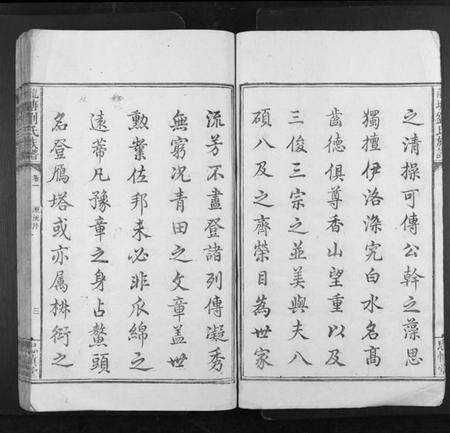 之清操可傳公幹之藻思
獨擅伊洛深究白水名高
齒德俱尊香山望重以及
三俊三宗之並美與夫八
碩八及之齊榮目為世家
流芳不盡登諸列傳凝秀
無窮況青田之文章蓋世
勳業佐邦未必非瓜綿之
遠蒂凡豫章之身占鰲頭
名登鴈塔或亦属椒衍之
劉氏族譜
卷一
三